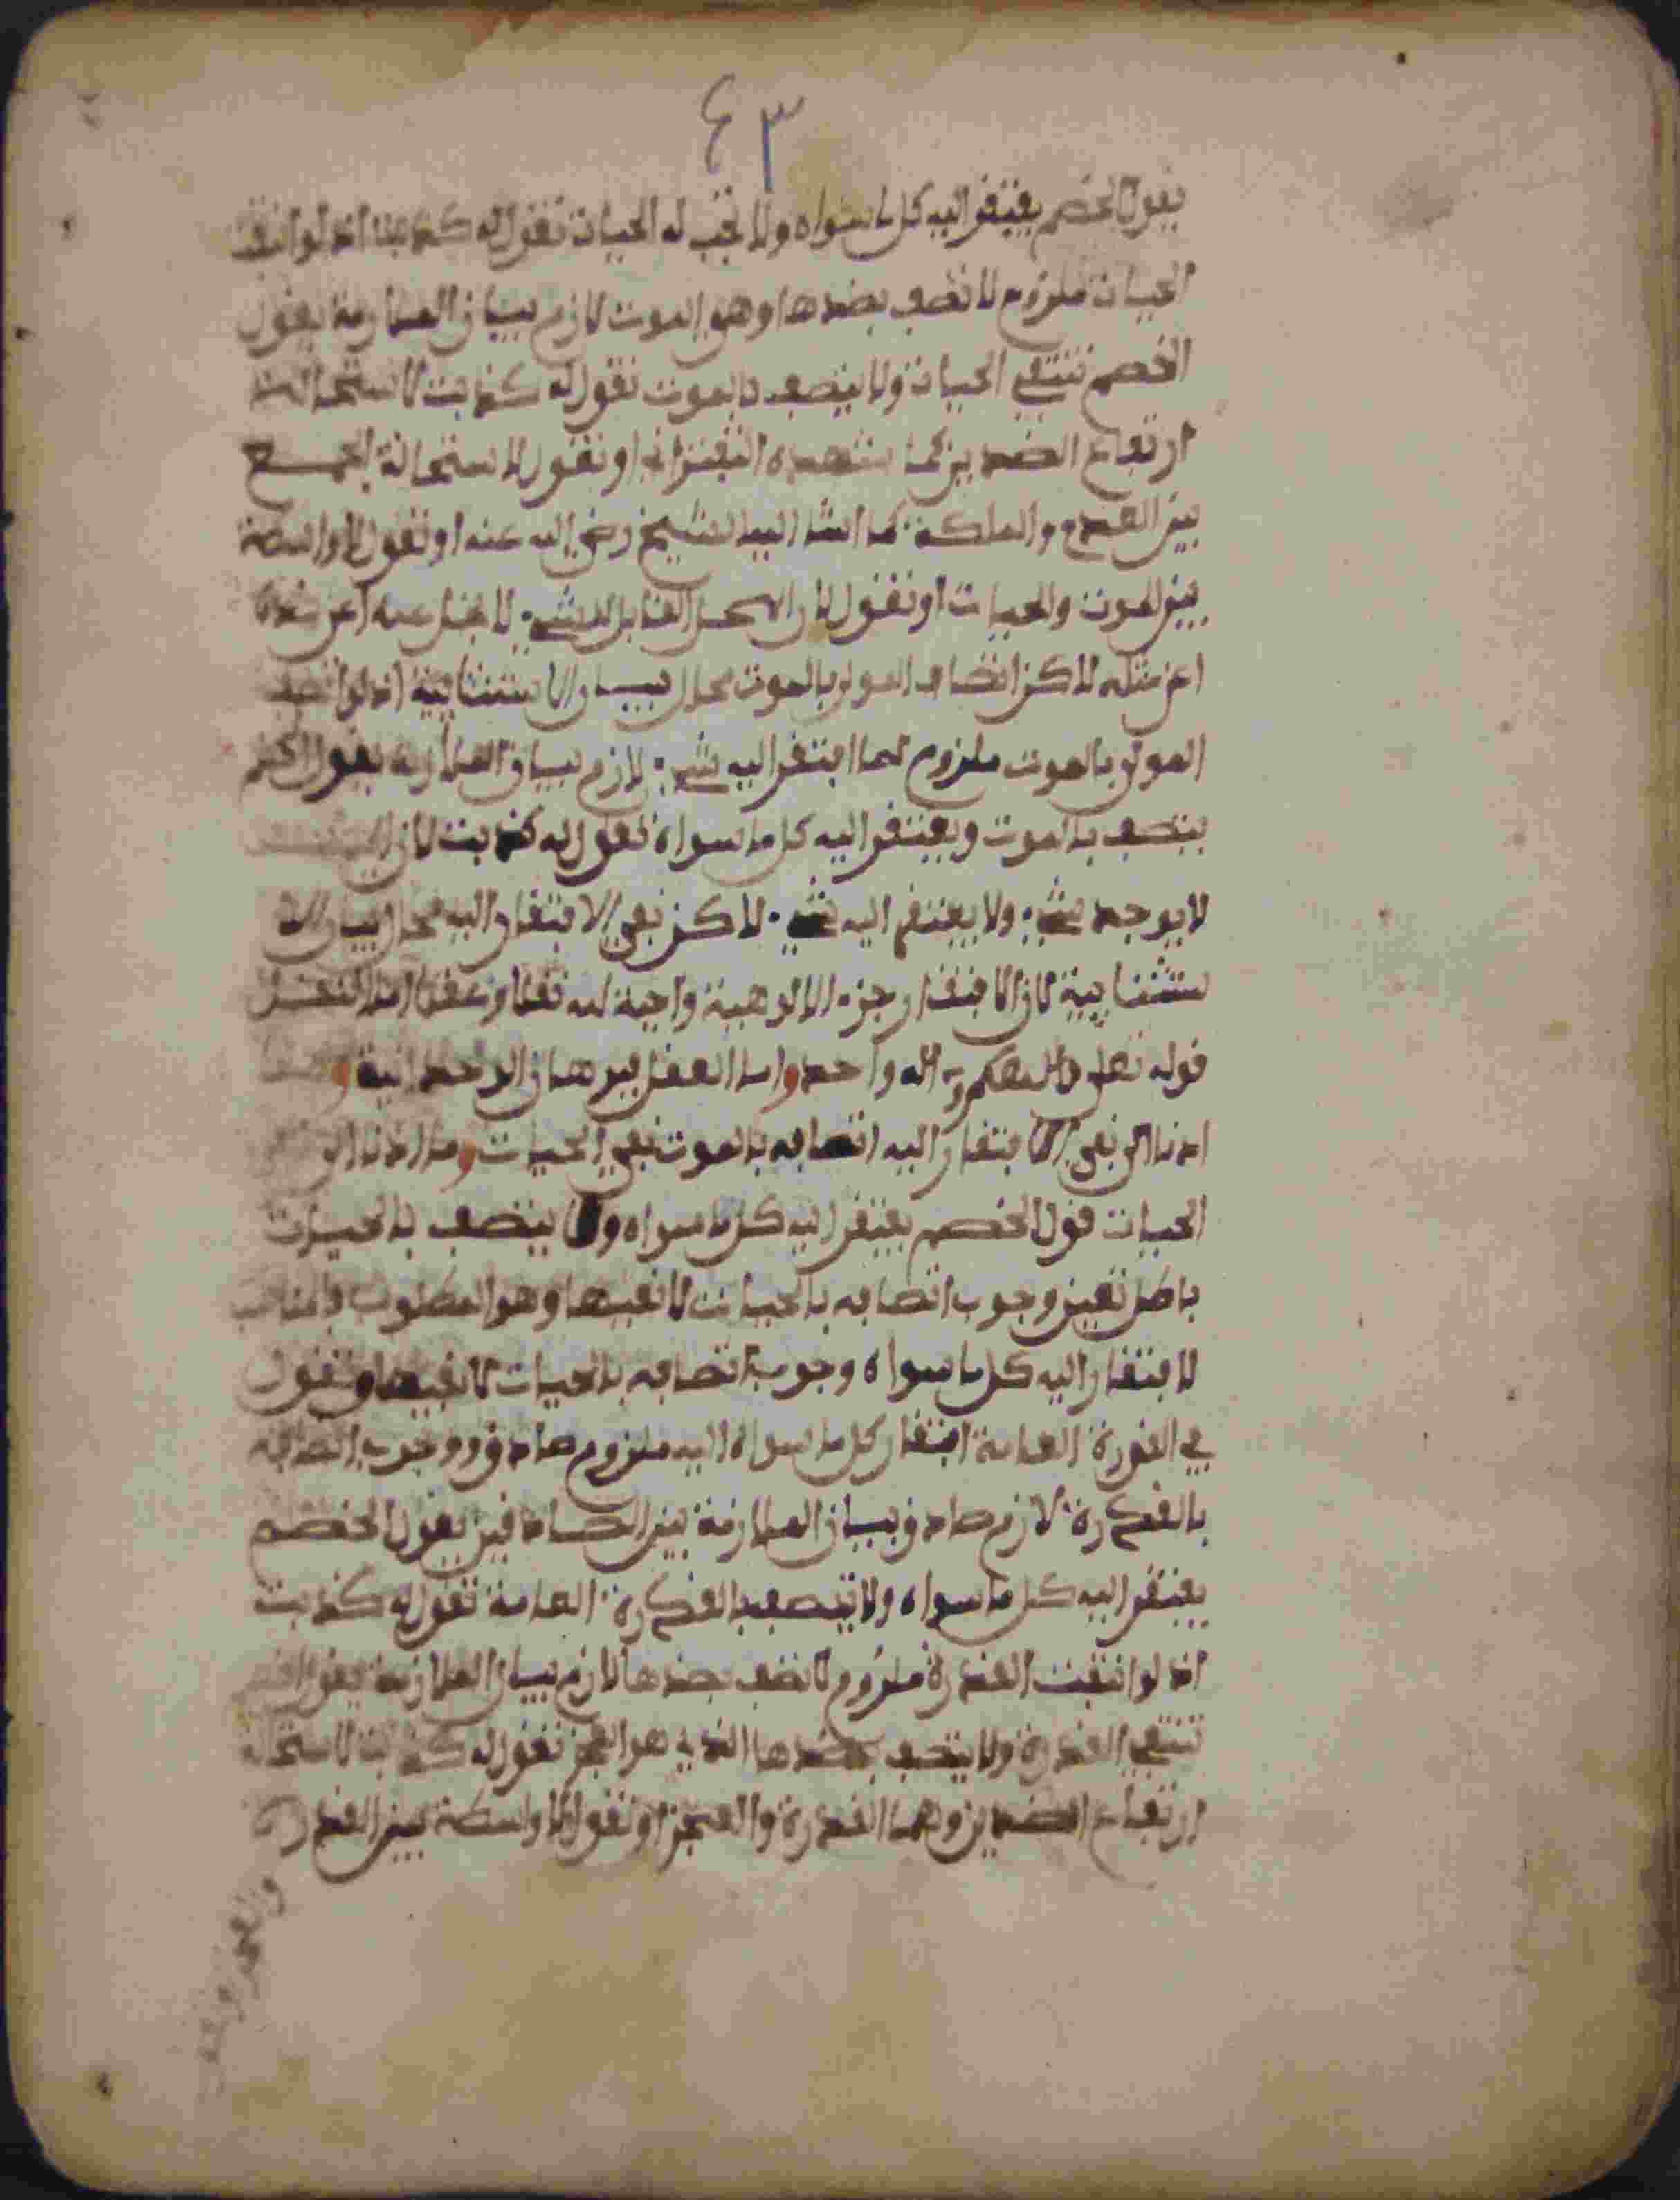 ٤٣
يقول الخصم يفتقر اليه كل ما سواه ولا تجب له الحيات تقول له كذبت اذ لو انتفت
الحيات ملزوم لاتصف بضدها وهو الموت لازم بيان الملازمة يقول
الخصم تنتفي الحيات ولا يتصف بالموت تقول له كذبت لاستحالة
ارتفاع الضدين كما شهده التفتزاني او تقول لاستحالة الجمع
بين العدم والملكة كما اشار اليه الشيخ رضي الله عنه او تقول لا واسطة
بين الموت والحيات او تقول لان المحل القابل للشيء لا يخلو عنه او عن ضده
او عن مثله لاكن اتصاف المولى بالموت محال بيان الاستثنايية اذ لو اتصف
المولى بالموت ملزوم لما افتقر اليه شيء لازم بيان الملازمة يقول الخصم
يتصف بالموت ويفتقر اليه كل ما سواه تقول له كذبت لان
لا يوجد شيء ولا يفتقر اليه شيء لاكن نفي الافتقار اليه محال بيان الا
ستثنايية لان الافتقار جزء الالوهية واجبة له نقلا وعقلا اما النقل
قوله تعلى والاهكم اله واحد واما العقل ببرهان الوحدانية و
ادنا الى نفي الافتقار اليه اتصافه بالموت نفي الحيات وما ادنا الى
الحيات قول الخصم يفتقر اليه كل ما سواه ولا يتصف بالحيات
باطل تعين وجوب اتصافه بالحيات لا نفيها وهو المطلوب
لافتقار اليه كل ما سواه وجوب اتصافه بالحيات لا نفيها وتقول
في القدرة العامة افتقار كل ما سواه اليه ملزوم صادق ووجوب اتصافه
بالقدرة لازم صادق وبيان الملازمة بين الصادقين يقول الخصم
يفتقر اليه كل ما سواه ولا يتصف بالقدرة العامة تقول له كذبت
اذ لو انتفت القدرة ملزوم لاتصف بضدها لازم بيان الملازمة يقول الخصم
تنتفي القدرة ولا يتصف بضدها الذي هو العجز تقول له كذبت لاستحالة
ارتفاع الضدين وهما القدرة والعجز او تقول لا واسطة بين القدرة